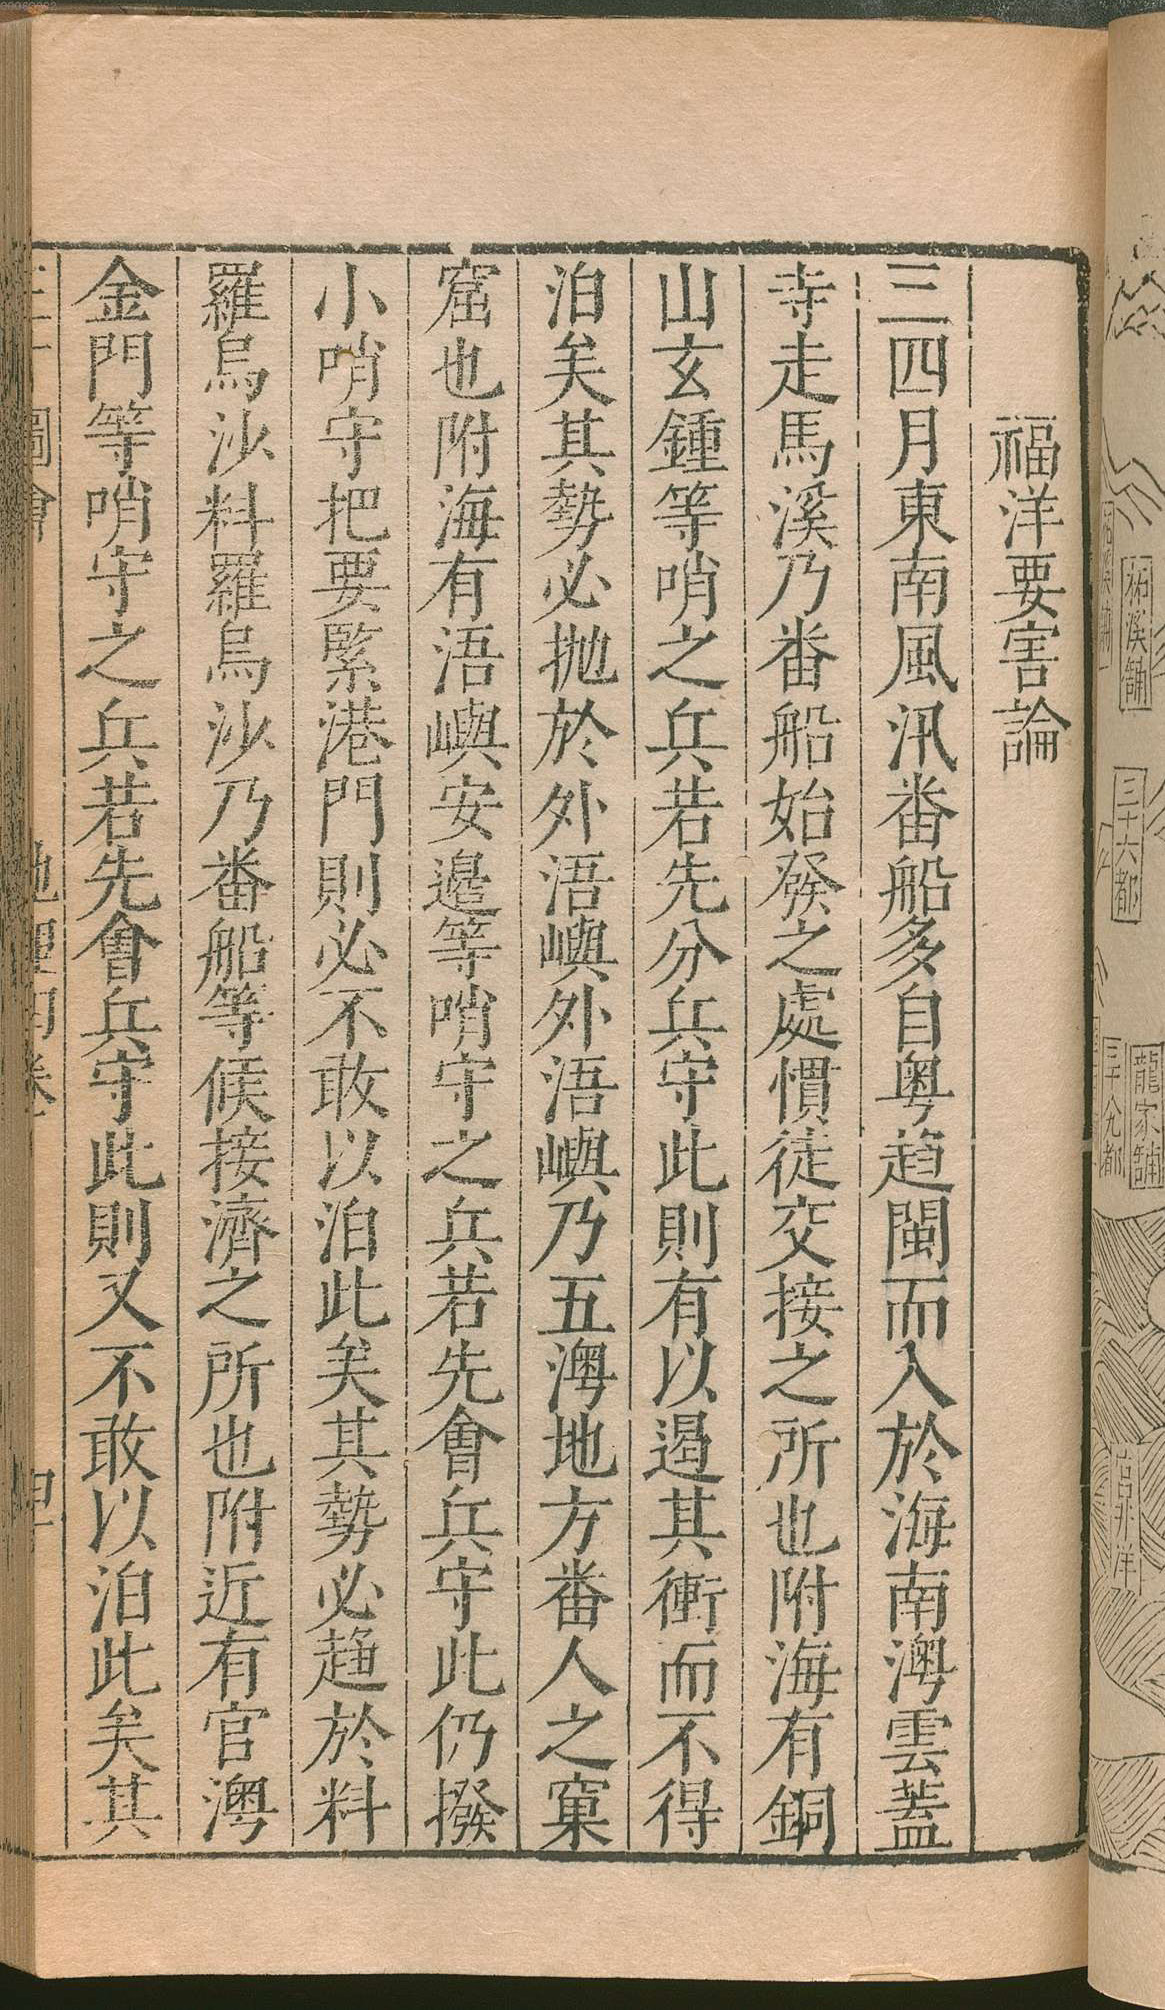 福洋要害論
三四月東南風汛番船多自粤趋閩而入於海南澳雲蓋
寺走馬溪乃番船始發之處慣徒交接之所也附海有銅
山玄鍾等哨之兵若先分兵守此則有以遏其衝而不得
泊矣其勢必拋於外浯嶼外浯嶼乃五澳地方番人之窠
窟也附海有浯嶼安邉等哨守之兵若先會兵守此仍撥
小哨守把要緊港門則必不敢以泊此矣其勢必趋於料
羅烏沙料羅烏沙乃番船等候接濟之所也附近有官澳
金門等哨守之兵若先會兵守此則又不敢以泊此矣其
三才圖會 地理四卷
柘溪舖
三十六都
龍家舖